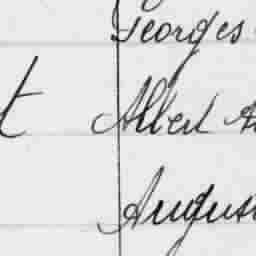 Georges
t Albert A
Augus